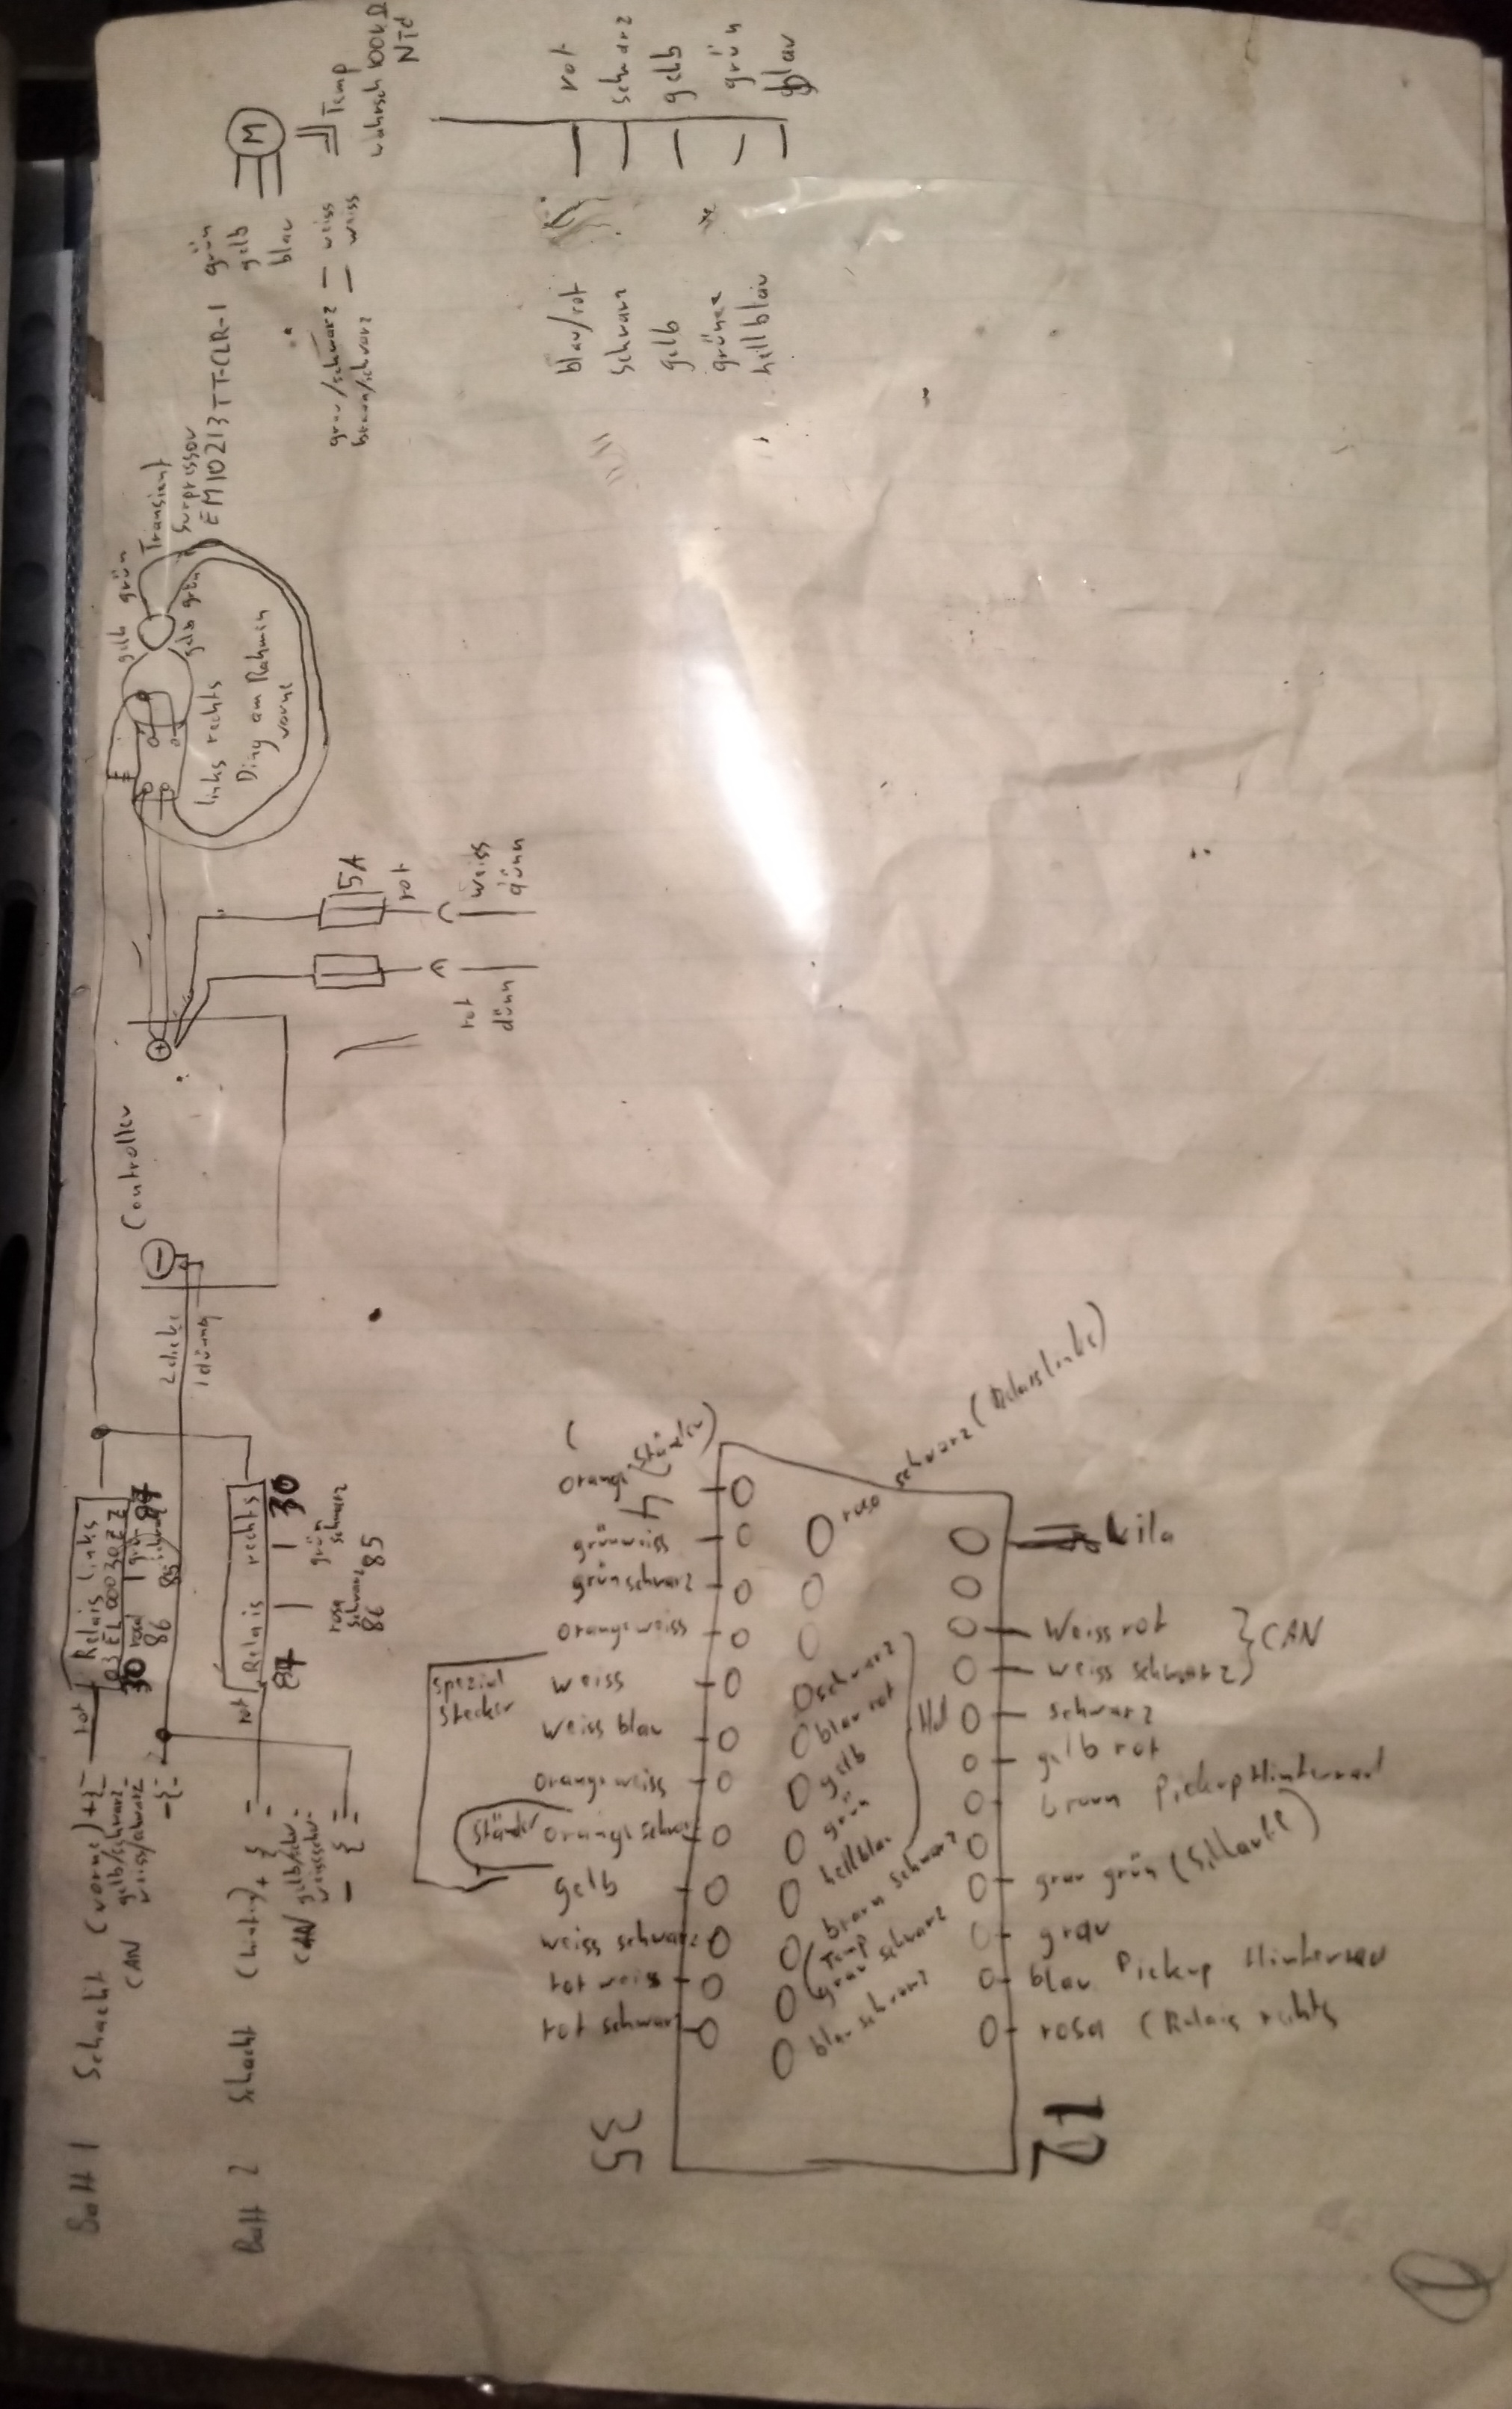 Batt 1 Schacht (vorne) +{
CAN gelb/schwarz
weiss/schwarz
-{
rot
Relais links
03EL 003022
30 rosa
86
85
87
Batt 2 Schacht +
CAN gelb/schw.
-{
rot
Relais rechts
87
30
rosa
schwarz
86
grün
schwarz
85
2 dicke
1 dünn
Controller
-
+
rot
dünn
15A
rot
weiss
dünn
links rechts
Ding am Rahmen
vorne
gelb grün
gelb grün
Transient
Surpressor
EM10213TT-CLR-1
grün
gelb
blau
M
grau/schwarz — weiss
braun/schwarz — weiss
Temp
wahrsch 100kΩ
NTC
blau/rot
schwarz
gelb
hellblau
rot
schwarz
gelb
grün
blau
orange
4
(Ständer)
grünweiss
grünschwarz
orangeweiss
Spezial
Stecker
weiss
weiss blau
orangeweiss
Ständer
orange schwarz
gelb
weiss schwarz
rot weiss
rot schwarz
35
rosa schwarz (Relais links)
schwarz
blau rot
gelb
grün
hellblau
braun schwarz
Temp
grau schwarz
blau schwarz
Lila
Weiss rot
weiss schwarz
} CAN
schwarz
gelb rot
braun Pickup Hinterrad
grau grün
grau
blau Pickup Hinterrad
rosa (Relais rechts
12
1